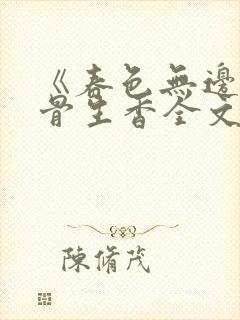 《春色無邊
骨生香全文
陳脩茂